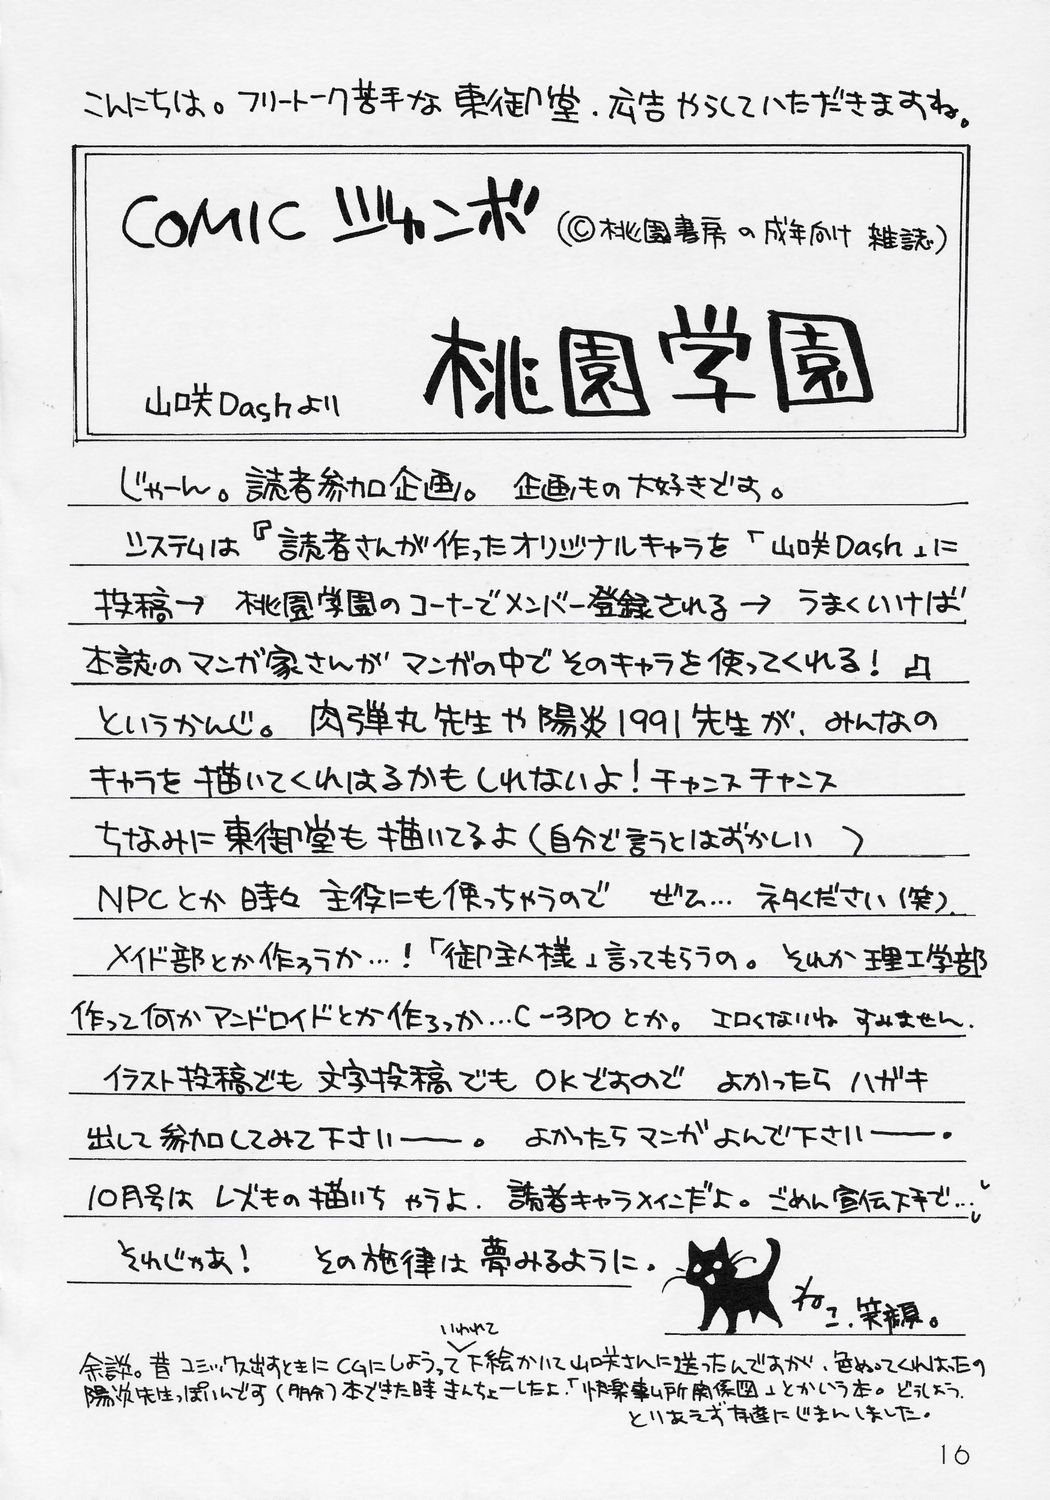 こんにちは。フリートーク苦手な東御堂、広告やらしていただきますね。
COMIC ジャンボ (©桃園書房の成年向け雑誌)
桃園学園
山咲Dashより
じゃーん。読者参加企画。 企画もの大好きです。
システムは『読者さんが作ったオリジナルキャラを「山咲Dash」に
投稿→ 桃園学園のコーナーでメンバー登録される → うまくいけば
本誌のマンガ家さんがマンガの中でそのキャラを使ってくれる! ♫
というかんじ。 肉弾丸先生や陽炎1991先生が、みんなの
キャラを描いてくれはるかもしれないよ!チャンスチャンス
ちなみに東御堂も描いてるよ(自分で言うとはずかしい )
NPCとか時々主役にも使っちゃうので ぜひ… ネタください(笑)
メイド部とか作ろうか…!「御主人様」言ってもらうの。それか理工学部
作って何かアンドロイドとか作ろっか…C-3POとか。エロくないねすみません.
イラスト投稿でも文字投稿でもOKですので よかったらハガキ
出して参加してみて下さいー。 よかったらマンガよんで下さいー.
10月号はレズもの描いちゃうよ. 読者キャラメインだよ。ごめん宣伝下手で…
それじゃあ! その旋律は夢みるように.
ねこ.笑顔。
いわれて
余談。昔コミックス出すときにCGにしようって下絵かいて山咲さんに送ったんですが、色ぬってくれはったの
陽炎先生っぽいんです(多分)本できた時きんちょーしたよ.「快楽事ム所関係図」とかいう本。どうしよう.
とりあえず友達にじまんしました。
16